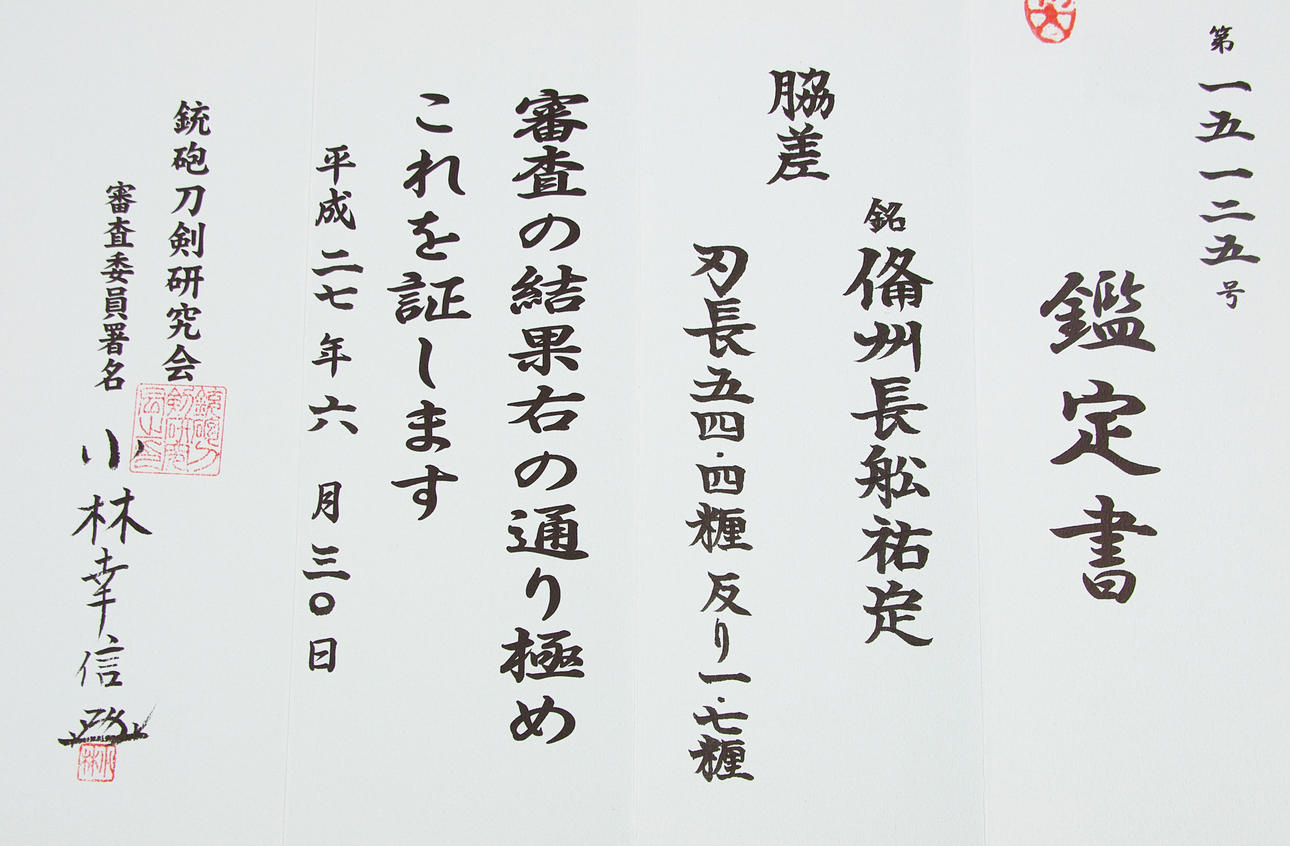 第一五一二五号
鑑定書
銘 俻州長舩祐定
脇差
刃長五四・四糎 反り一・七糎
審査の結果右の通り極め
これを証します
平成二七年六月三〇日
銃砲刀剣研究会
審査委員署名 小林幸信
小林